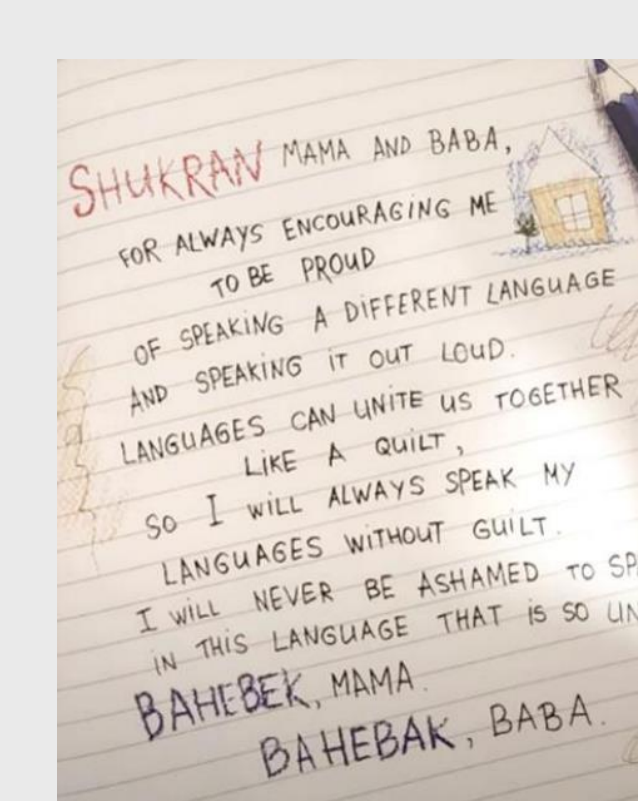 SHUKRAN MAMA AND BABA,
FOR ALWAYS ENCOURAGING ME
TO BE PROUD
OF SPEAKING A DIFFERENT LANGUAGE
AND SPEAKING IT OUT LOUD.
LANGUAGES CAN UNITE US TOGETHER
LIKE A QUILT,
SO I WILL ALWAYS SPEAK MY
LANGUAGES WITHOUT GUILT.
I WILL NEVER BE ASHAMED TO
IN THIS LANGUAGE THAT IS SO
BAHEBEK, MAMA.
BAHEBAK, BABA.